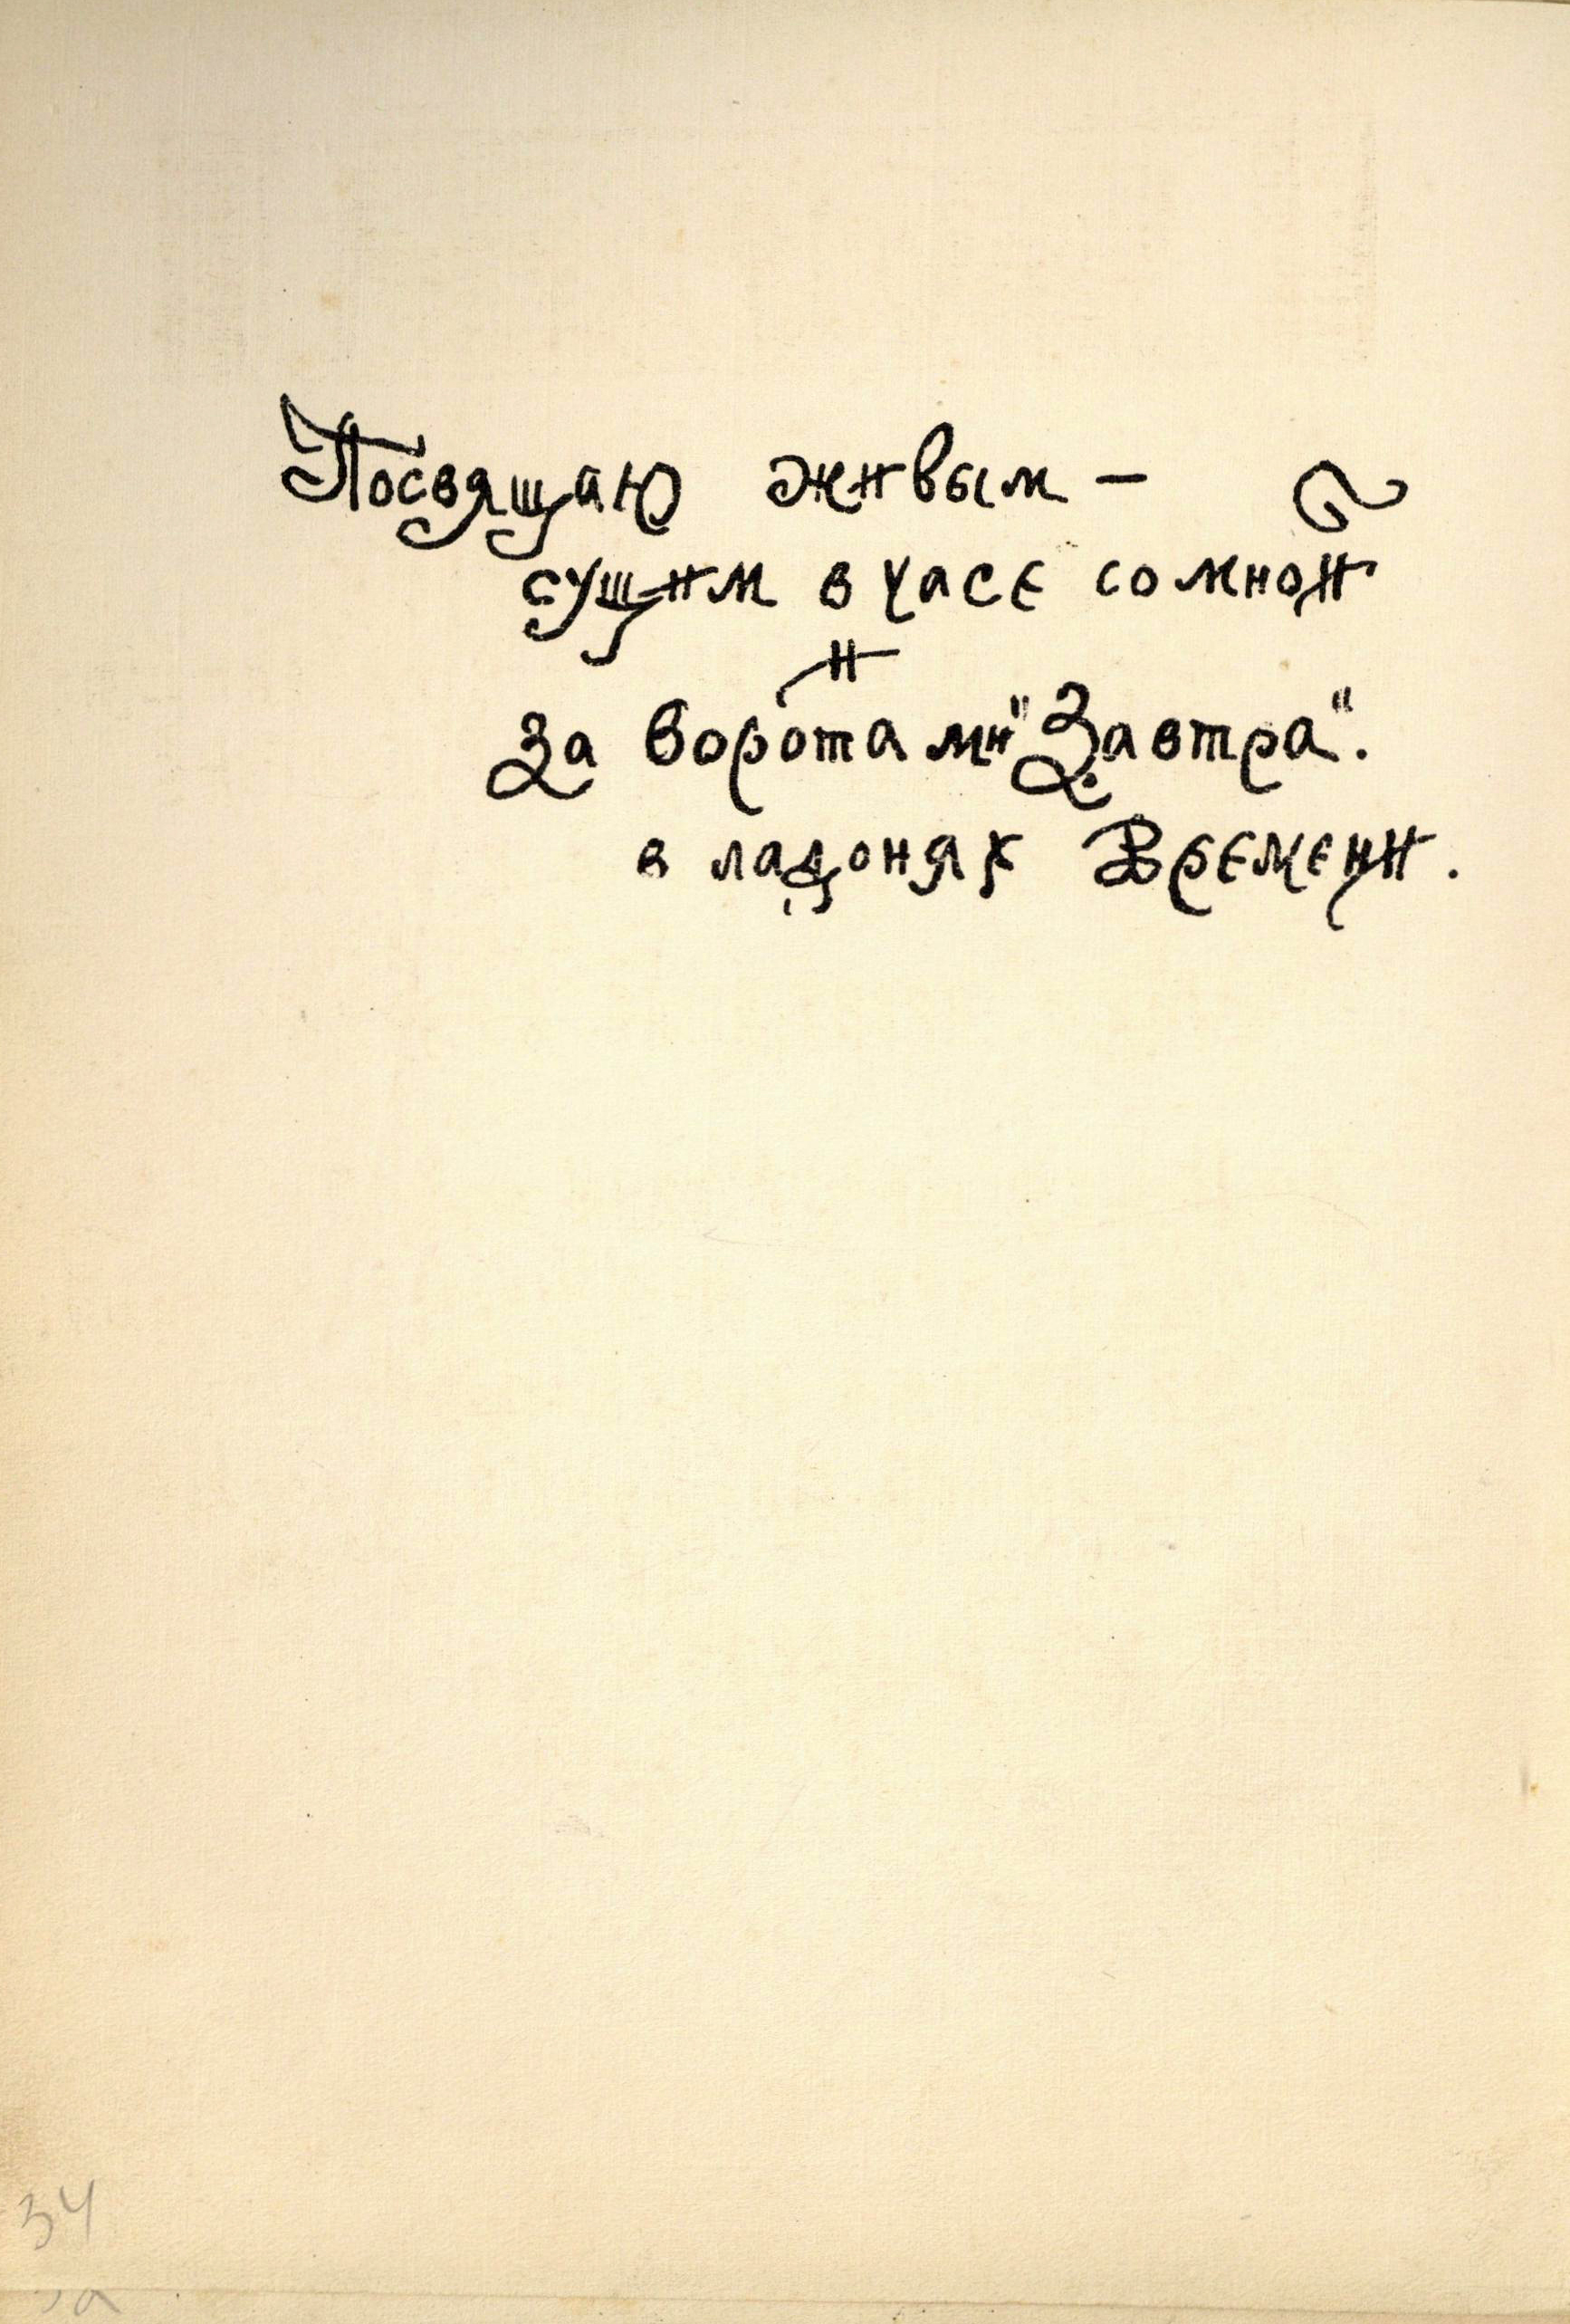 Посвящаю живым –
сущим в часе со мной
и
за воротами "Завтра".
в ладонях Времени.
34